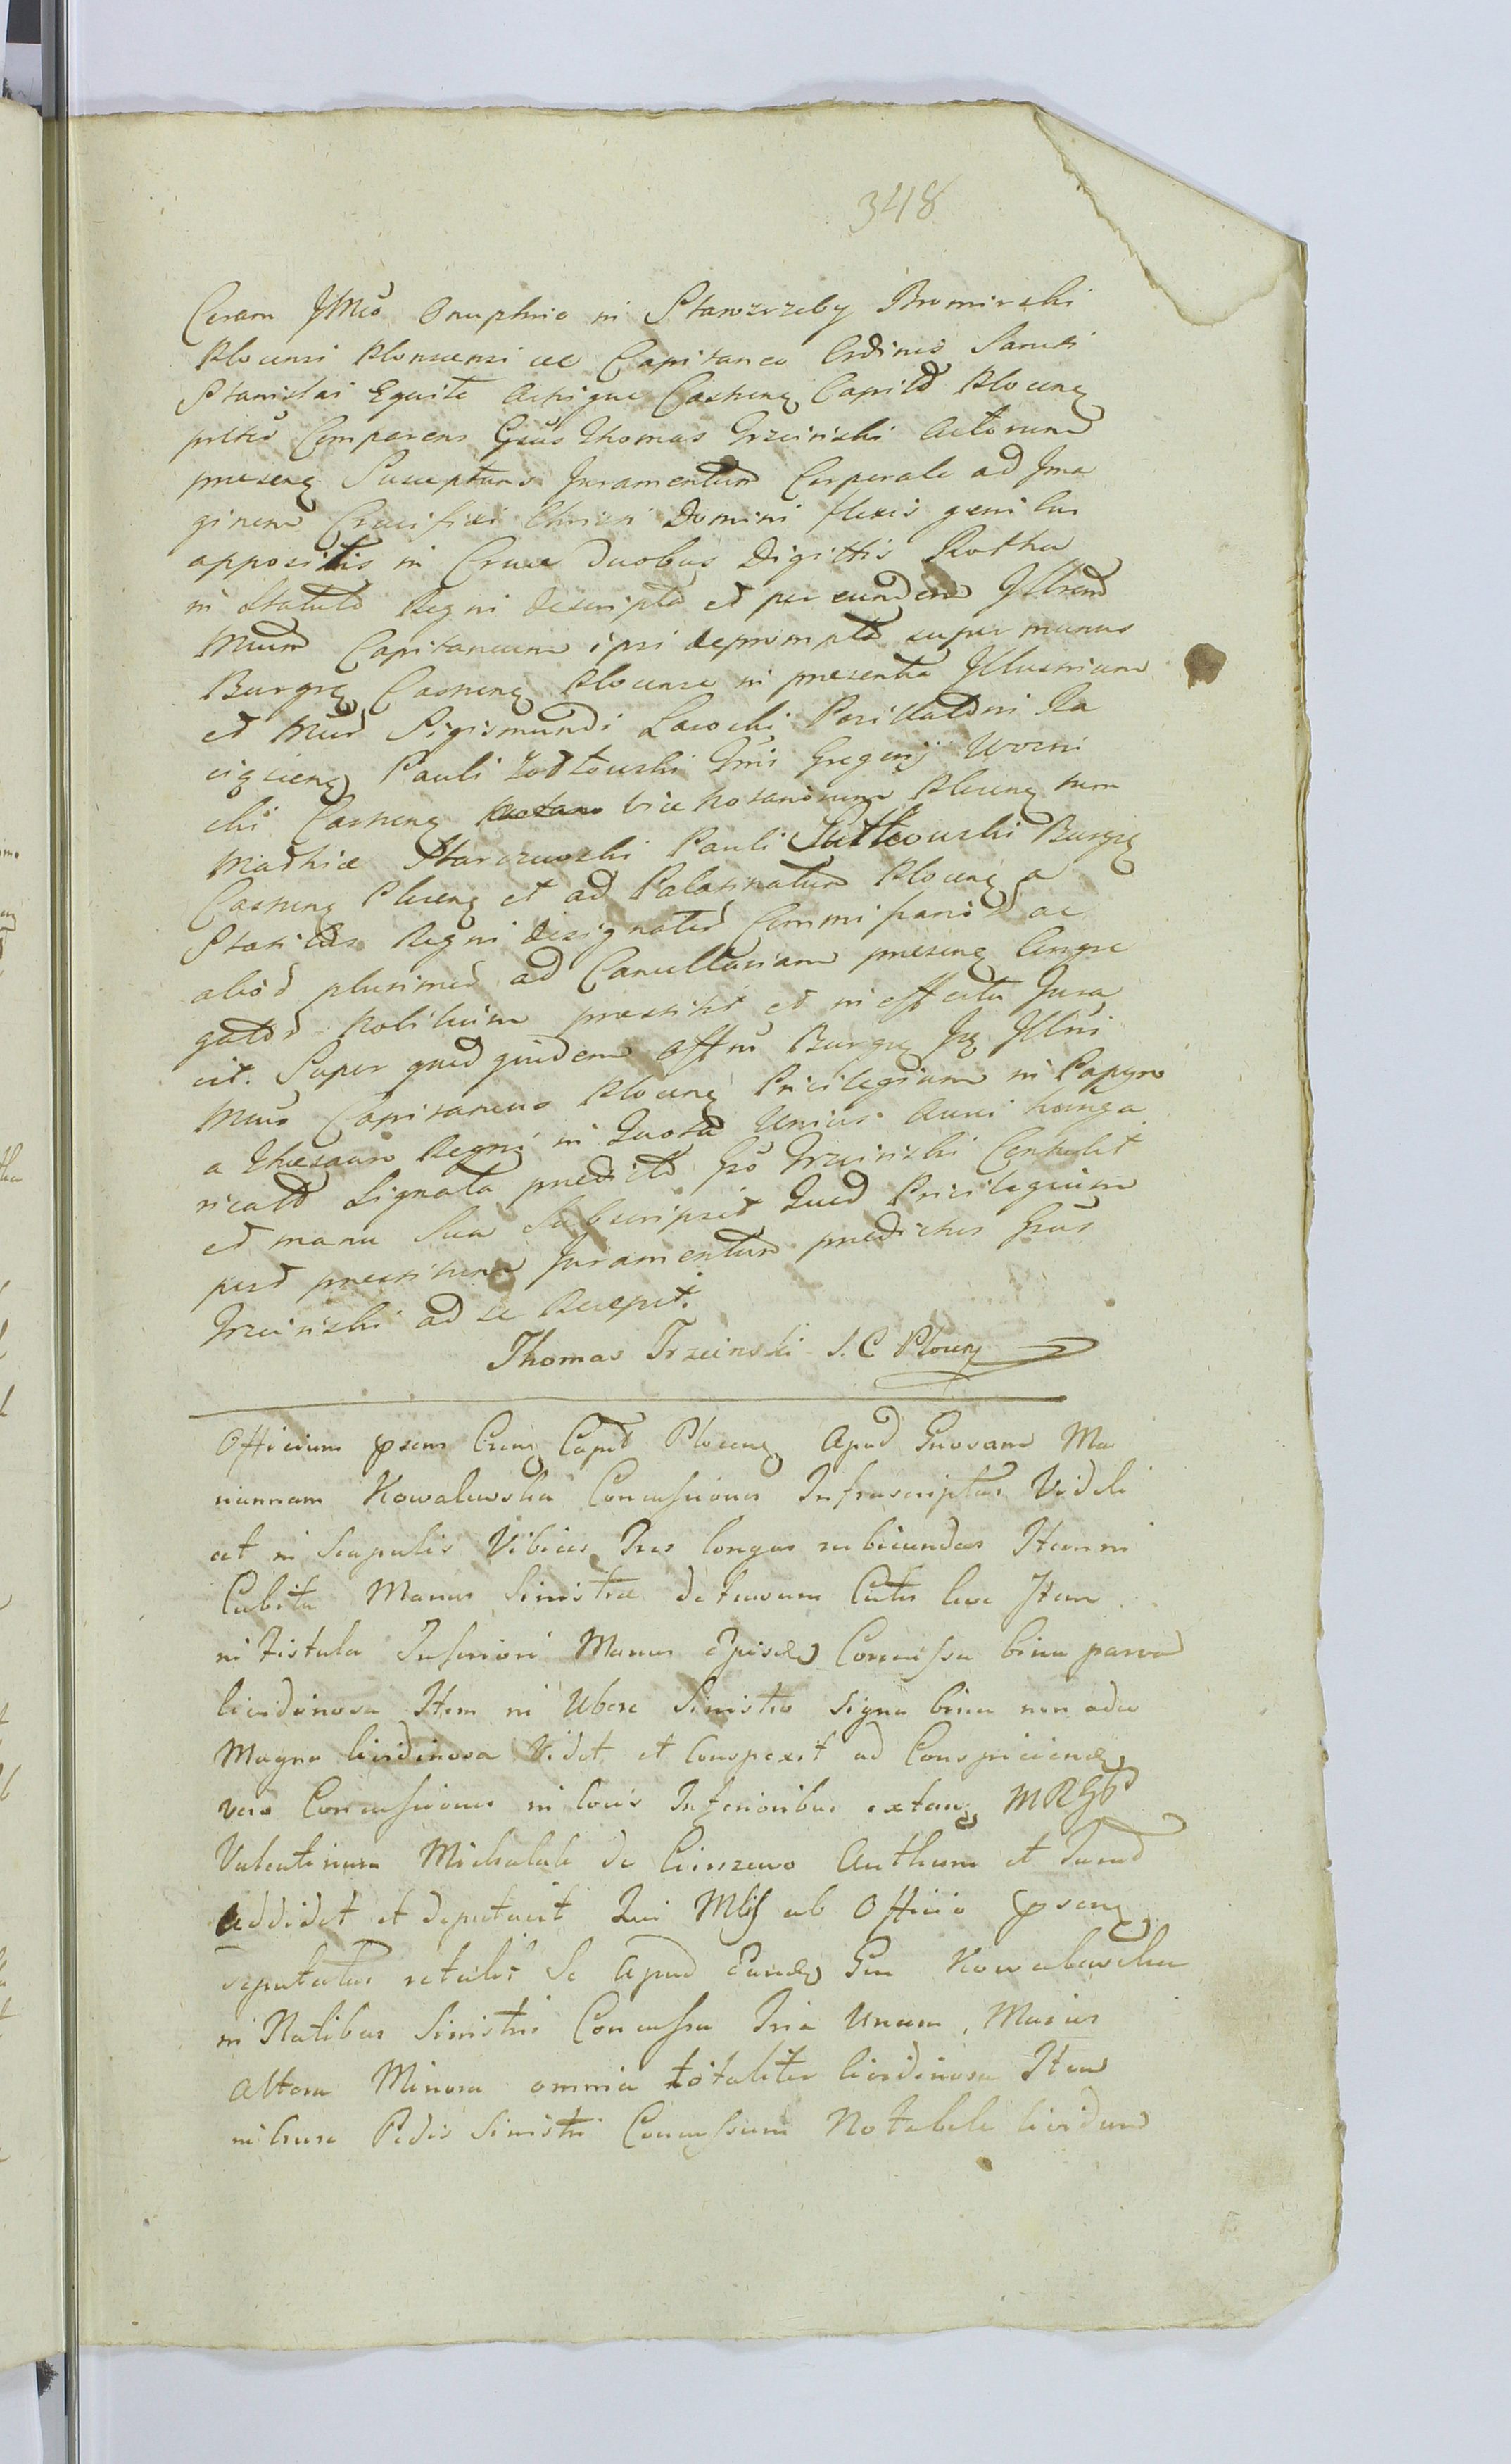 348
Coram JMco Onuphrio in Starozrzeby Bromirski
Plocensi Plonscensi ce Capitaneo Ordinis Sancti
Stanislai Equite Actique Castren Capitd Plocen
pntis Comparens Gsus Thomas Trzcinski Actorum
presen Susceptans Juramentum Corporale ad Jma
ginem Crucifixi Christi Domini flexis genibus
appositis in Cruce duobus Digittis Rotha
in Statuto Regni descripta et per eundem Jllrem
Mcum Capitaneum ipsi deprompta super munus
Burgr Castren Plocense in presentia Jllustrium
et Mcor Sigismundi Lasocki Pocillatoris Ra
ciązien Pauli Zołtowski Gsi Gregorij Woźni
cki Castren vice Notariorum Plocen nem
Mathiæ Starczewski Pauli Sutkowski Burgr
Castren Plocen et ad Palatinatum Plocen a
Statibus Regni designator Commissarior ac
alior plurimor ad Cancellariam presen Congre
gator Nobilium prestitit et in effectu Jura
vit. Super quod quidem Offm Burgr Jdq Jllris
Mcus Capitaneus Plocen Privilegium in Papyro
a Thesauro Regni in Quota Unius Aurei hunga
ricalis Signata predicto Gso Trzcinski Contulit
et manu Sua Subscripsit Quod Privilegium
post prestitum Juramentum predictus Gsus
Trzcinski ad se Recepit.
Thomas Trzcinski S. C Plocen
Officium psens Cren Capit Plocen Apud Gnosam Ma
riannam Kowalewska Concussiones Infrascriptas Videli
cet in Scapulis Vibices Tres longas rubicundas Item in
Cubitu Manus Sinistræ detusum Cutis leve Item
in Fistula Inferiori Manus Ejusdem Concussa bina parva
lividinosa Item in Ubere Sinistro Signa bina non adeo
Magna lividinosa Vidit et Conspexit ad Conspiciend
vero Concussiones in locis Inferioribus extan MRGb
Valentinum Michalak de Ciinzewo Authum et Jurad
addidit et deputavit Qui Mlis ab Officio psen
deputatus retulit Se Apud Eande Gen Kowalewska
in Natibus Sinistris Concussa Tria Unum Maius
Altera Minora omnia totaliter lividinosa Item
in Crure Pedis Sinistri Concussum Notabile lividum